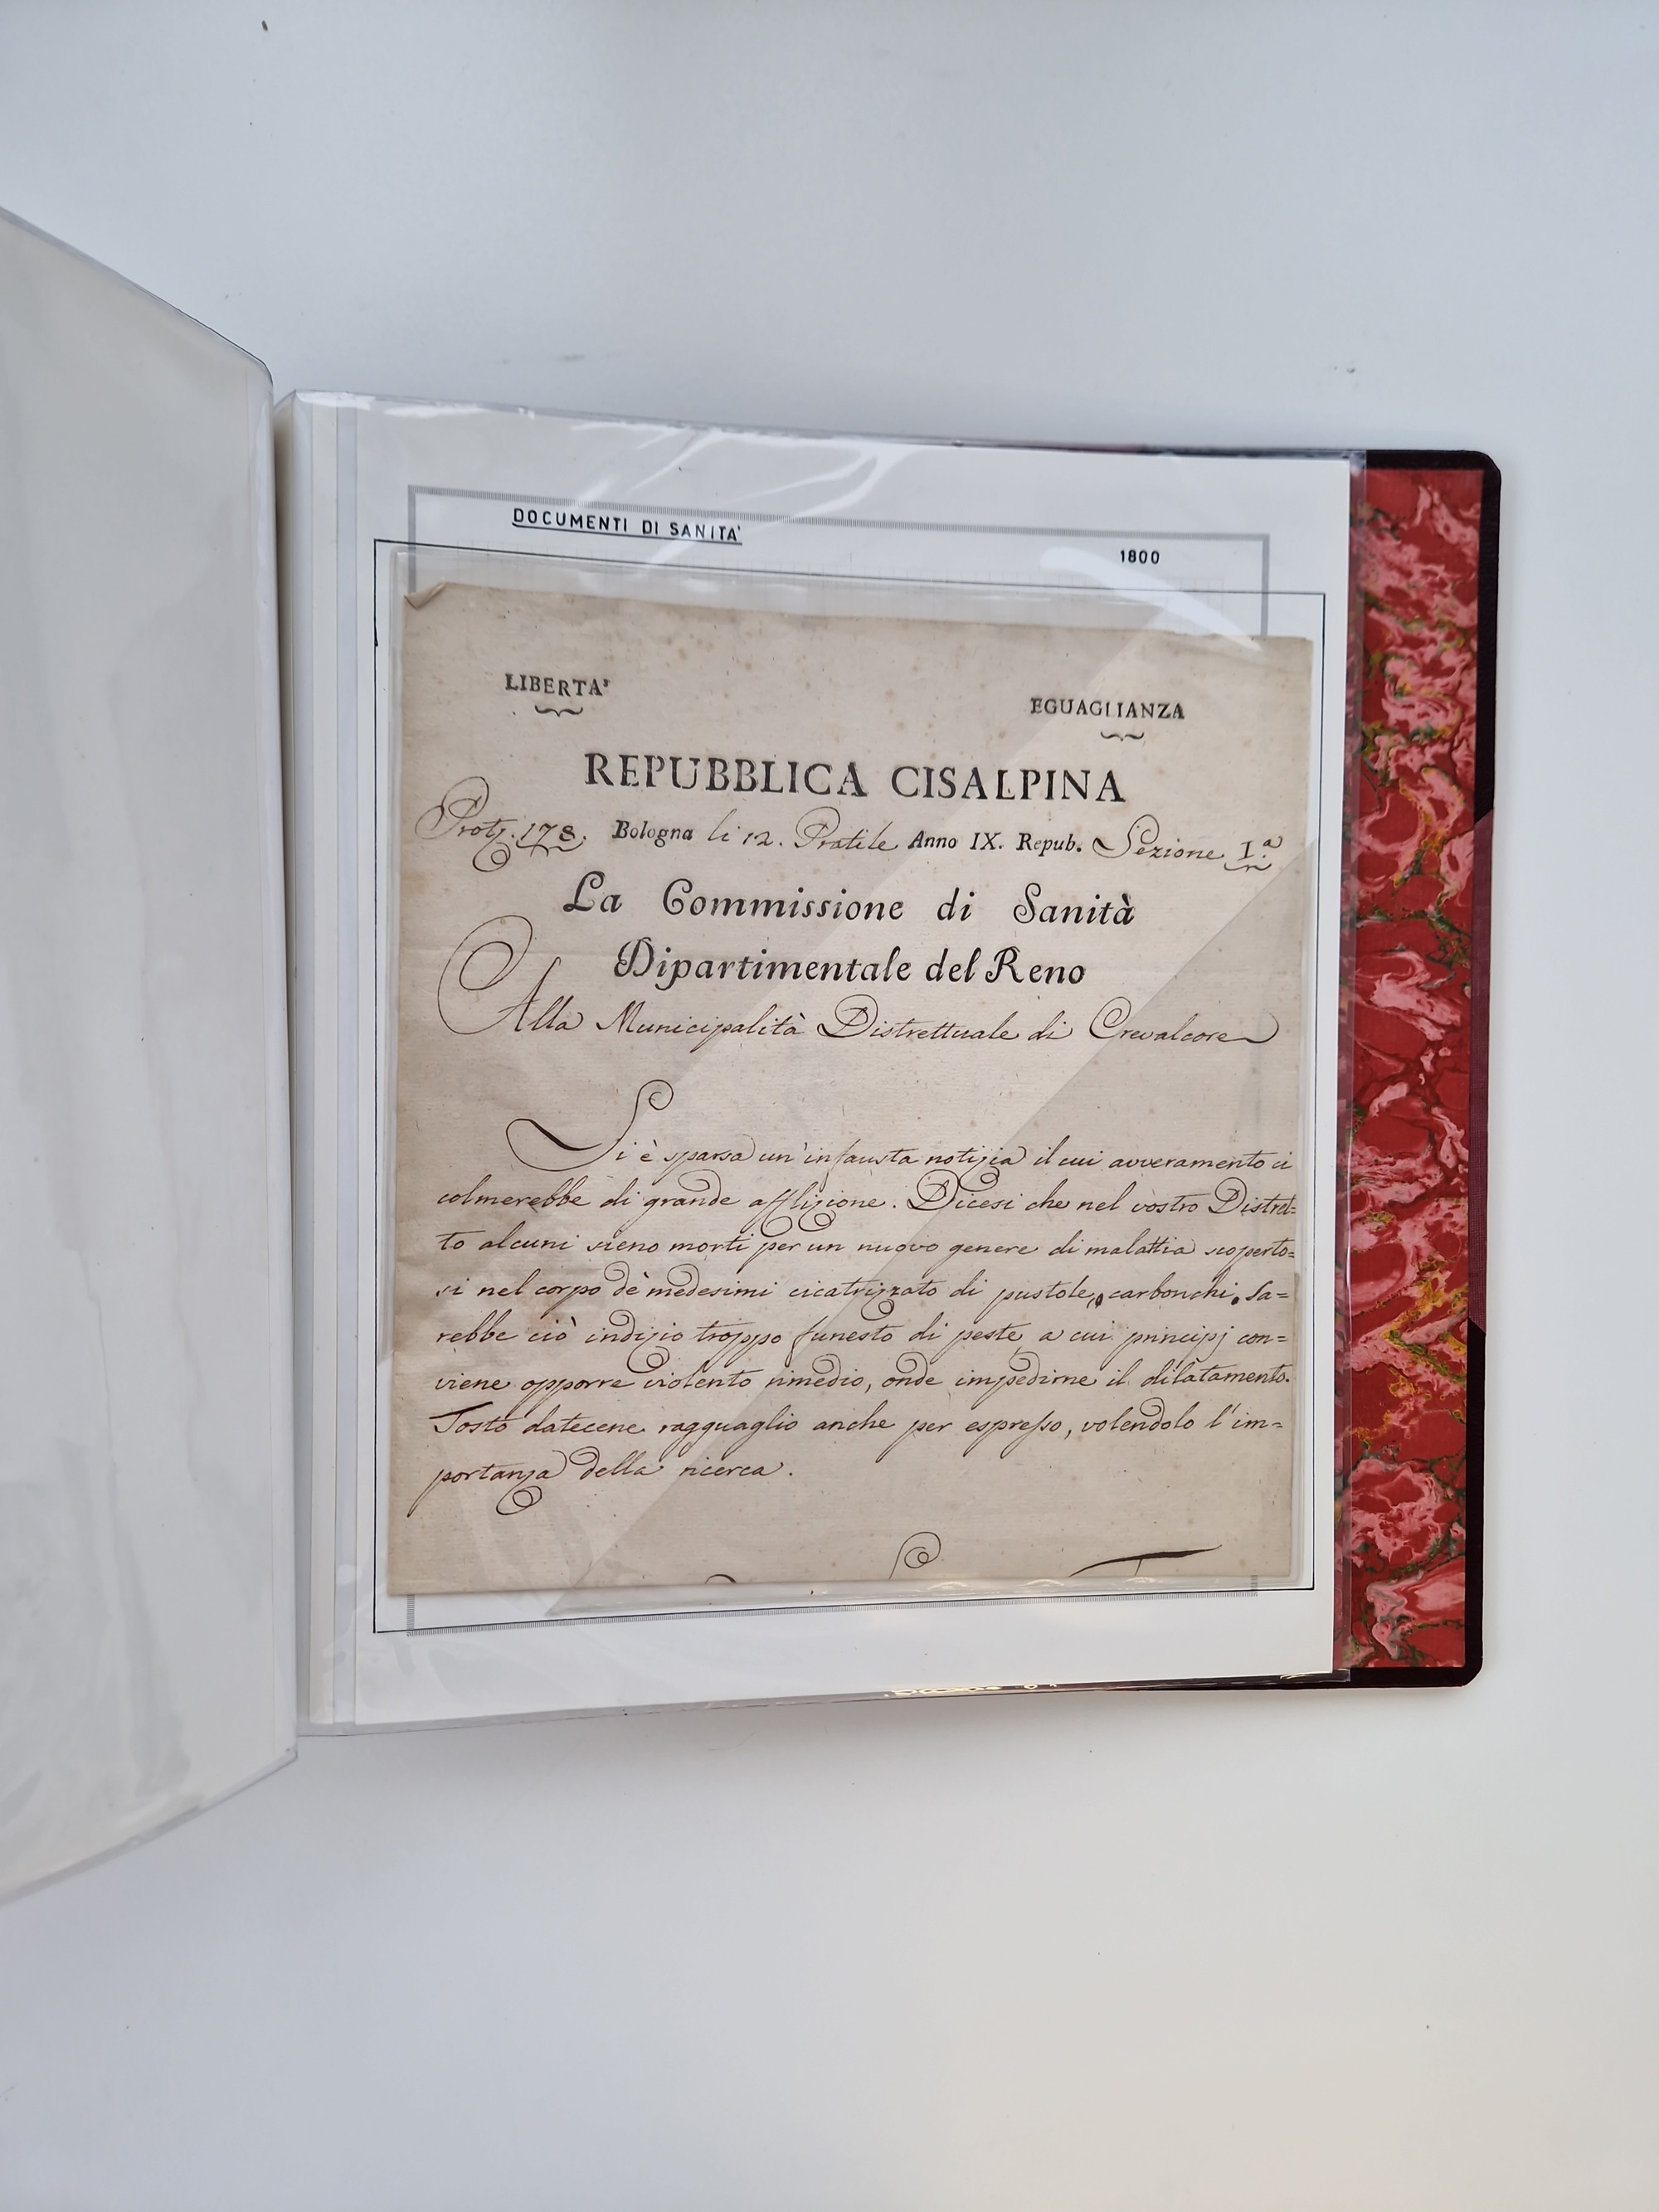 DOCUMENTI DI SANITA'
1800
LIBERTA'
EGUAGLIANZA
REPUBBLICA CISALPINA
Protz. 178. Bologna li 12. Pratile Anno IX. Repub. Sezione I.a
La Commissione di Sanità
Dipartimentale del Reno
Alla Municipalità Distrettuale di Crevalcore
Si è sparsa un'infausta notizia il cui avveramento ci
colmerebbe di grande afflizione. Dicesi che nel vostro Distret=
to alcuni sieno morti per un nuovo genere di malattia scoperto=
si nel corpo dè medesimi cicatrizzato di pustole, carbonchi. Sa=
rebbe ciò indizio troppo funesto di peste a cui principj con=
viene opporre violento rimedio, onde impedirne il dilatamento.
Tosto datecene ragguaglio anche per espresso, volendolo l'im=
portanza della ricerca.